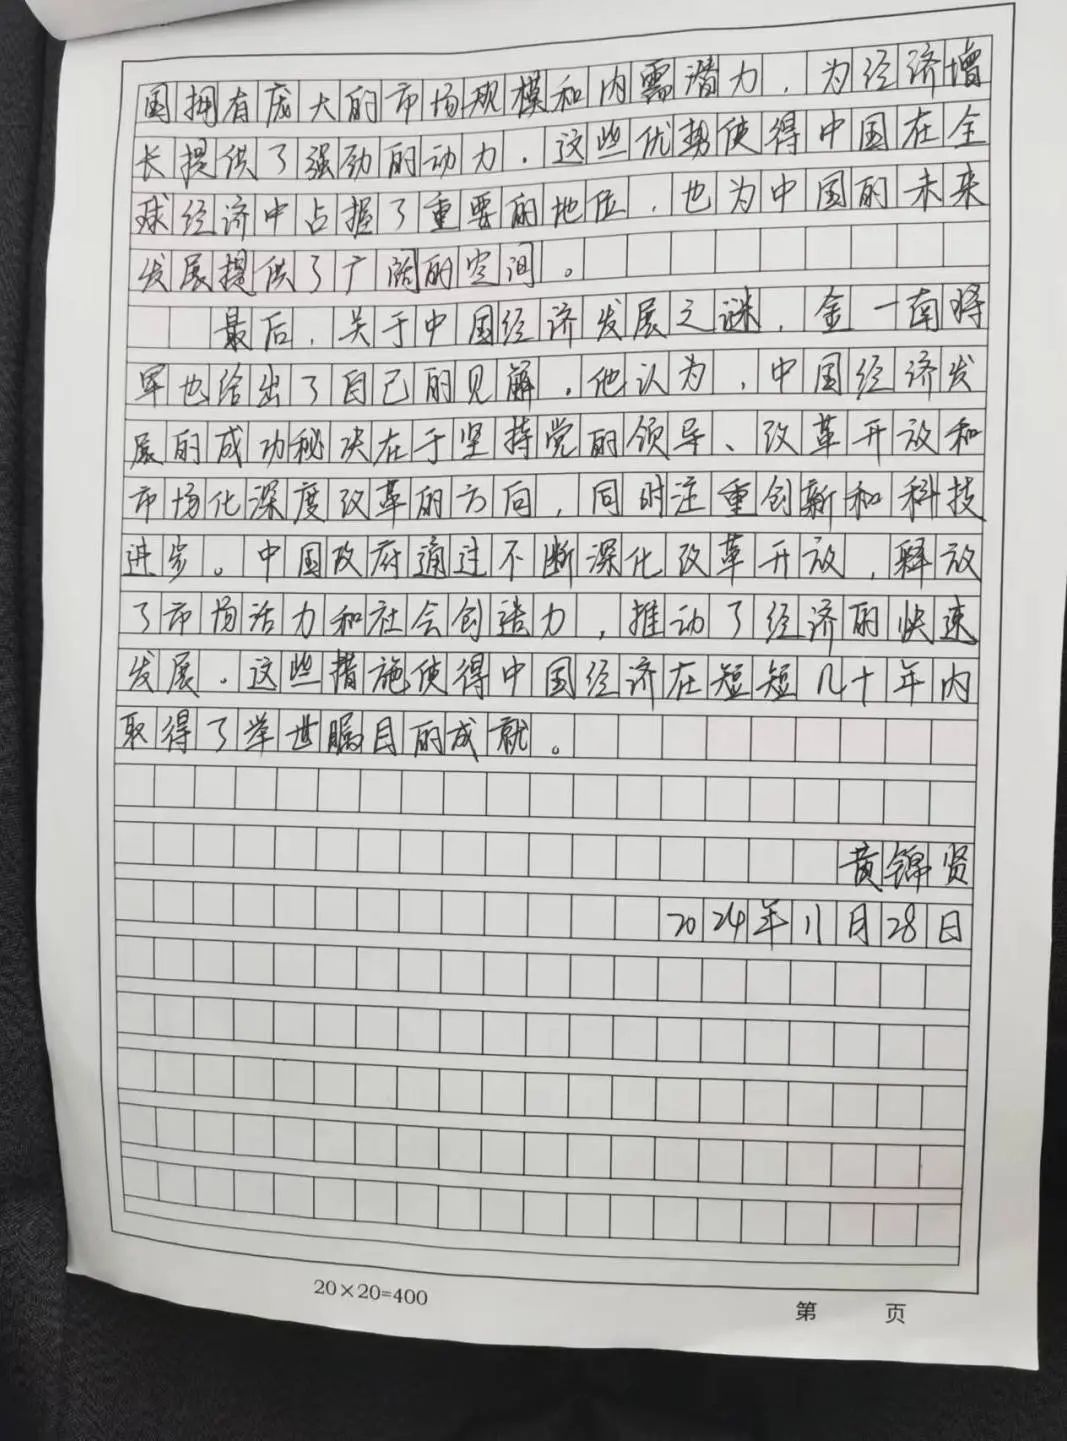 国拥有庞大的市场规模和内需潜力，为经济增
长提供了强劲的动力．这些优势使得中国在全
球经济中占据了重要的地位，也为中国的未来
发展提供了广阔的空间。
最后，关于中国经济发展之谜，金一南将
军也给出了自己的见解．他认为，中国经济发
展的成功秘决在于坚持党的领导、改革开放和
市场化深度改革的方向，同时注重创新和科技
进步。中国政府通过不断深化改革开放，释放
了市场活力和社会创造力，推动了经济的快速
发展．这些措施使得中国经济在短短几十年内
取得了举世瞩目的成就。
黄锦贤
2024年11月28日
20×20=400
第 页